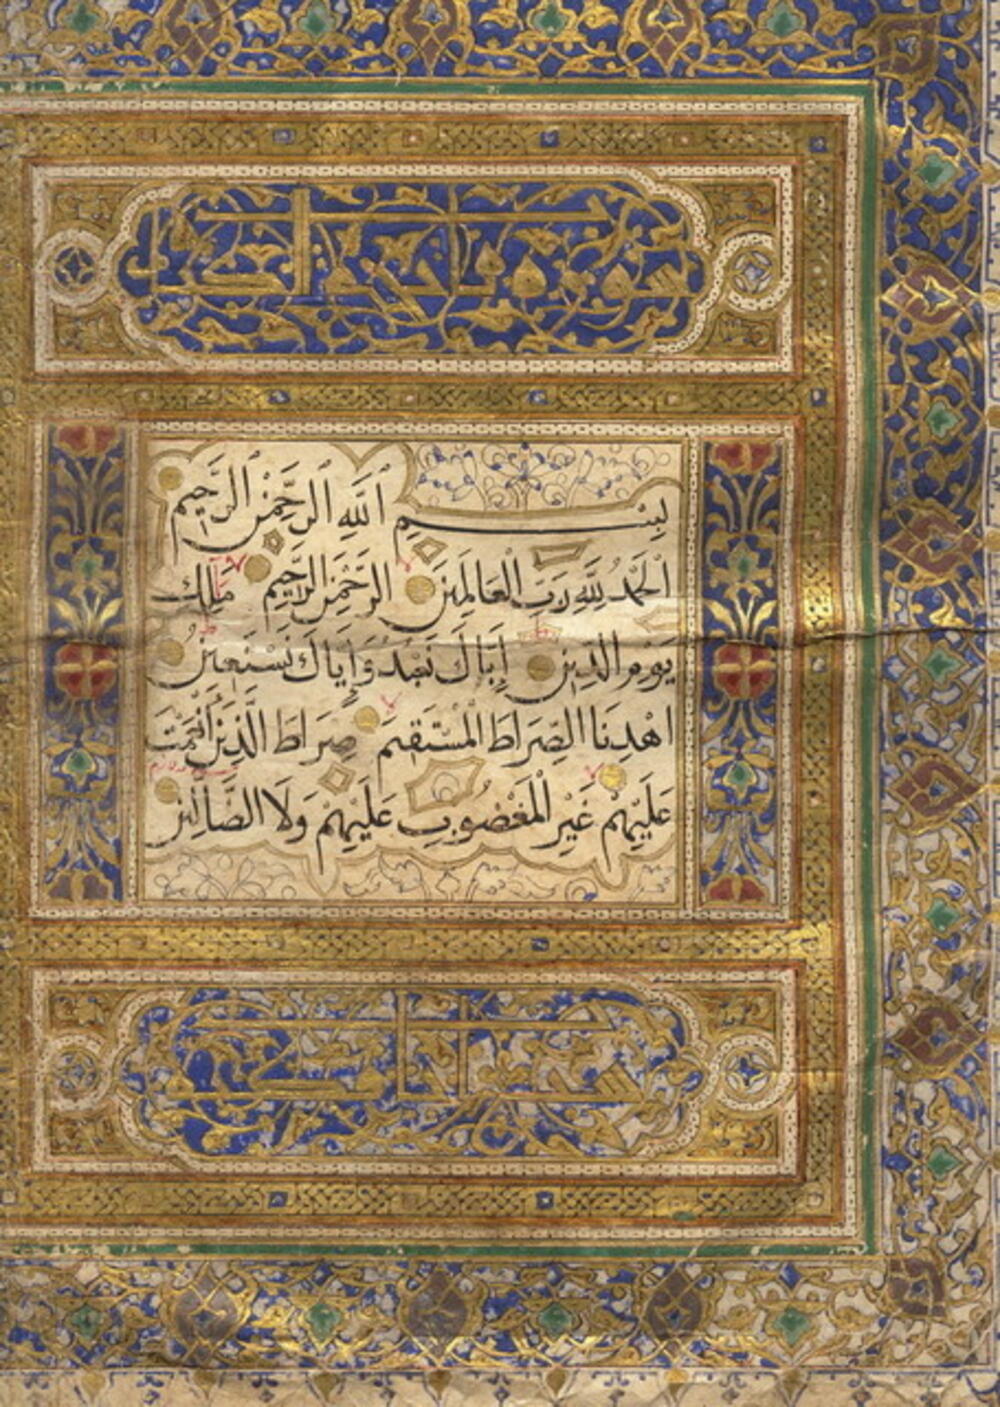 سورة فاتحة الكتاب
بِسْمِ ٱللَّهِ ٱلرَّحْمٰنِ ٱلرَّحِيمِ
اَلْحَمْدُ لِلّٰهِ رَبِّ الْعَالَمِينَ الرَّحْمٰنِ الرَّحِيمِ مَالِكِ
يَوْمِ الدِّينِ إِيَّاكَ نَعْبُدُ وَإِيَّاكَ نَسْتَعِينُ
اهْدِنَا الصِّرَاطَ الْمُسْتَقِيمَ صِرَاطَ الَّذِينَ أَنْعَمْتَ
عَلَيْهِمْ غَيْرِ الْمَغْضُوبِ عَلَيْهِمْ وَلَا الضَّالِّينَ